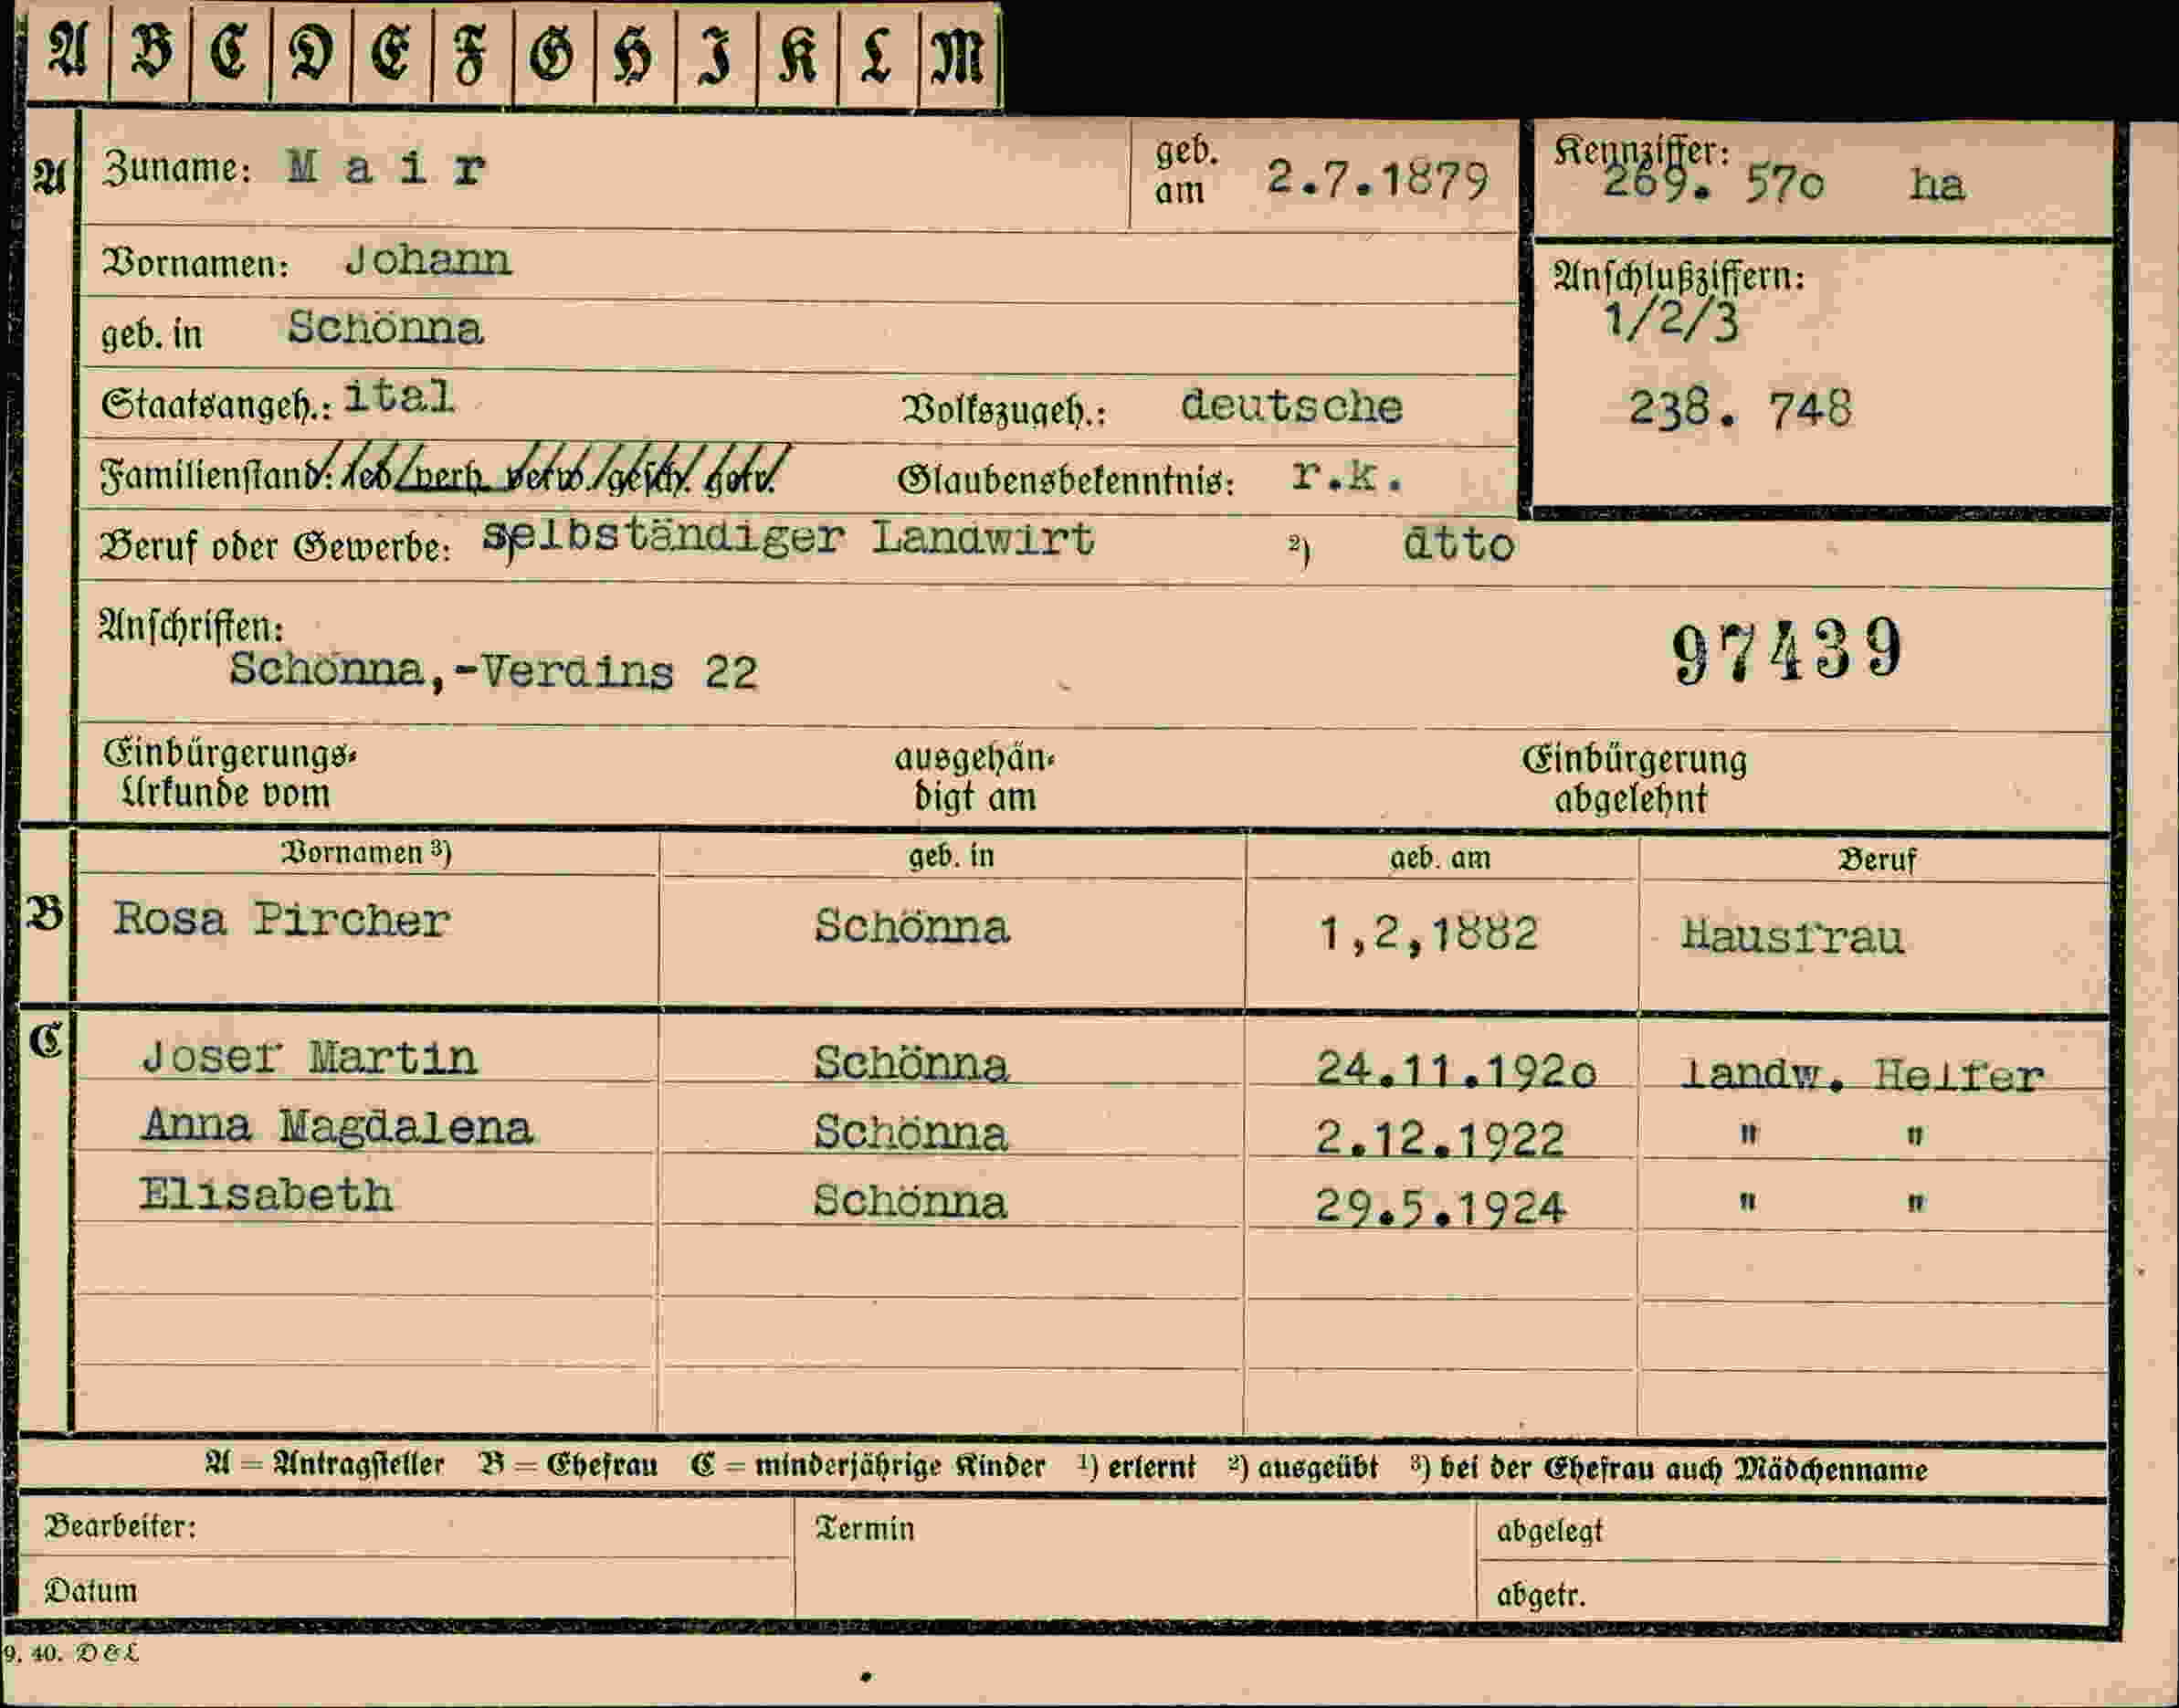 A B C D E F G H I K L M
A Zuname: M a i r geb. am 2.7.1879 Kennziffer: 269. 570 ha
Vornamen: Johann
Anschlußziffern:
1/2/3
geb. in Schönna
Staatsangeh.: ital Volkszugeh.: deutsche 238. 748
Familienstand: led. verh. verw. gesch. getr. Glaubensbekenntnis: r.k.
Beruf oder Gewerbe: selbständiger Landwirt ²) dtto
Anschriften:
Schönna,-Verdins 22 97439
Einbürgerungs- ausgehän- Einbürgerung
Urkunde vom digt am abgelehnt
Vornamen ³) geb. in geb. am Beruf
B Rosa Pircher Schönna 1,2,1882 Hausfrau
C Josef Martin Schönna 24.11.1920 landw. Helfer
Anna Magdalena Schönna 2.12.1922 " "
Elisabeth Schönna 29.5.1924 " "
A = Antragsteller B = Ehefrau C = minderjährige Kinder ¹) erlernt ²) ausgeübt ³) bei der Ehefrau auch Mädchenname
Bearbeiter: Termin abgelegt
Datum abgetr.
9. 40. D & L